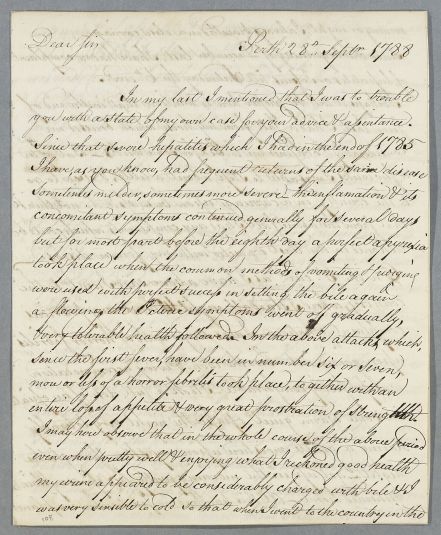 Dear Sir Perth 28th Septr 1788
In my last I mentioned that I was to trouble
you with a State of my own case for your advice & assistance.
Since that severe hepatites which I had in the end of 1785
I have as you know, had frequent returns of the same disease
Sometimes milder, sometimes more severe. The inflamation & its
concomitant symptoms continued generally for several days
but for most part before the eighth day a perfect apyrexia
took place when the common methods of vomiting & purging
were used with perfect success in setting the bile again
a flowing, the Icteric symptoms went of gradually,
& very tolerable health followed. In the above attacks, which,
since the first fever, have been in number six or seven,
more or less of a horror febrilis took place, together with an
entire loss of appetite & very great prostration of Strength.
I may here observe that in the whole course of the above period
even when pretty well & enjoying what I reckoned good health
my urine appeared to be considerably charged with bile & I
was very sensible to cold so that when I went to the country in the